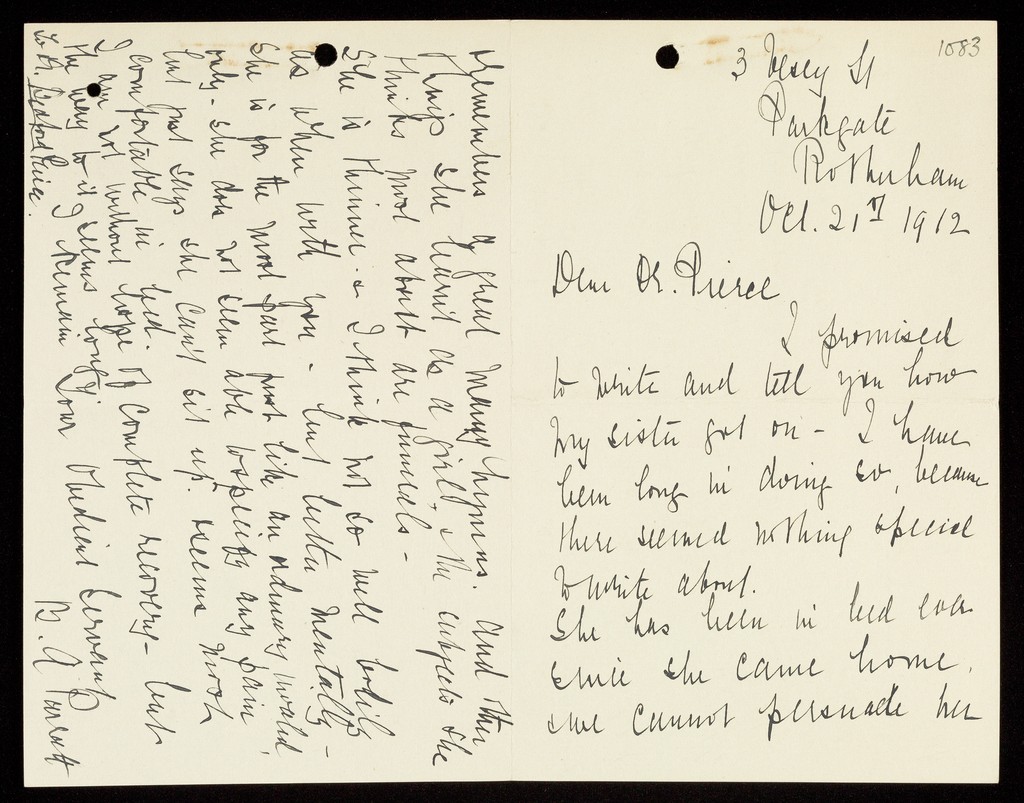 1083
3 Vesey St
Parkgate
Rotherham
Oct. 21st 1912
Dear Dr. Pierce
I promised
to write and tell you how
my sister got on - I have
been long in doing so, because
there seemed nothing special
to write about.
She has been in bed ever
since she came home.
we cannot persuade her
remembers a great many hymns. and other
things she learnt as a girl, & the subjects she
thinks most about are funerals -
She is thinner. & I think not so well bodily
as when with you - but better mentally -
She is for the most part just like an ordinary invalid
only - she does not seem able to specify any pain
but just says she can't sit up. seems most
comfortable in bed.
I am not without hope of complete recovery - but
the way to it seems long.
I remain Your Obedient Servant
B. A
To Dr. Bedford Pierce.